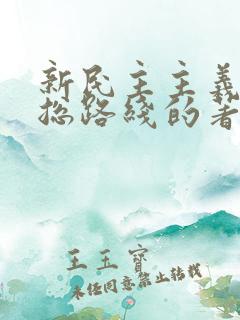 新民主主義
总路綫的著
王玉寶
未经同意禁止转载